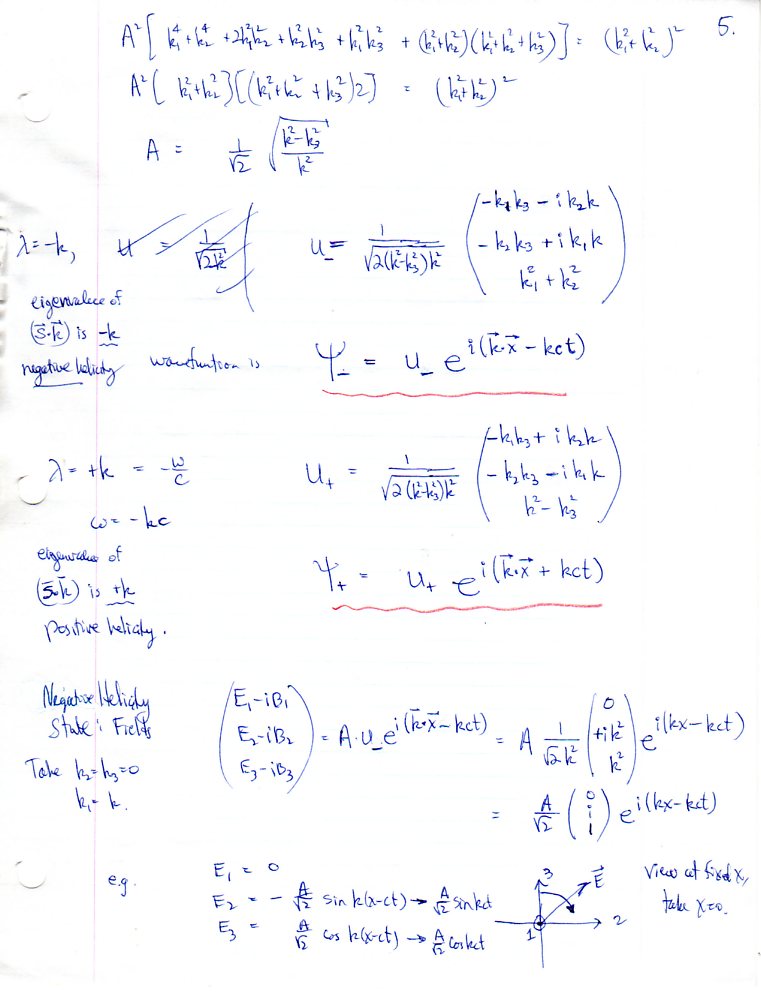 5.
A²[ k₁⁴ + k₂⁴ + 2k₁²k₂² + k₂²k₃² + k₁²k₃² + (k₁²+k₂²)(k₁²+k₂²+k₃²)] = (k₁²+k₂²)²
A²[ k₁²+k₂²][(k₁²+k₂²+k₃²)2] = (k₁²+k₂²)²
A = 1/√2 √((k²-k₃²)/k²)
λ = -k, u = 1/√(2k²) ( u₋ = 1/√(2(k²-k₃²)k²) ( -k₁k₃ - i k₂k
-k₂k₃ + i k₁k
k₁² + k₂² )
eigenvalue of
(s⃗·k⃗) is -k
negative helicity wavefunction is ψ₋ = u₋ e^{i(k⃗·x⃗ - kct)}
λ = +k = -ω/c u₊ = 1/√(2(k²-k₃²)k²) ( -k₁k₃ + i k₂k
-k₂k₃ - i k₁k
k² - k₃² )
ω = -kc
eigenvalue of
(s⃗·k⃗) is +k
positive helicity.
ψ₊ = u₊ e^{i(k⃗·x⃗ + kct)}
Negative Helicity
State: Fields
Take k₂=k₃=0
k₁ = k.
( E₁-iB₁
E₂-iB₂
E₃-iB₃ ) = A·u₋e^{i(k⃗·x⃗ - kct)} = A 1/√2k² ( 0
+ik²
k² ) e^{i(kx-kct)}
= A/√2 ( 0
i
1 ) e^{i(kx-kct)}
e.g. E₁ = 0
E₂ = - A/√2 sin k(x-ct) → A/√2 sin kct
E₃ = A/√2 cos k(x-ct) → A/√2 cos kct
3
E⃗
2
1
view at fixed x,
take x=0.